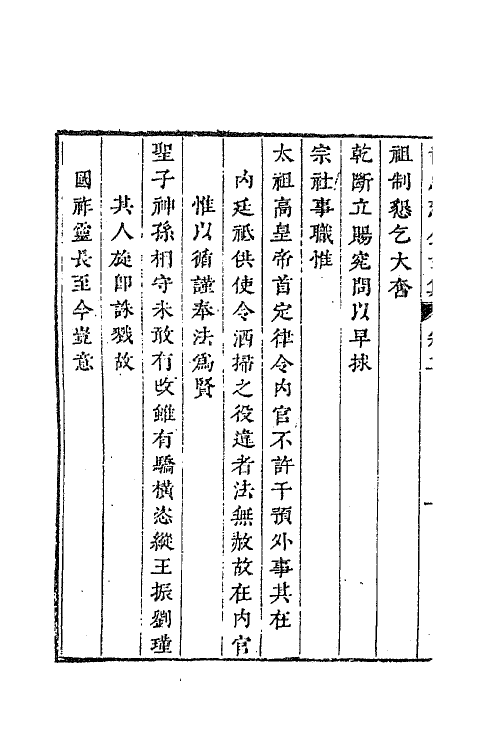 祖制懇乞大奮
乾斷立賜究問以早拯
宗社事職惟
太祖高皇帝首定律令內官不許干預外事其在
內廷祗供使令洒掃之役違者法無赦故在內官
惟以循謹奉法為賢
聖子神孫相守未敢有改雖有驕橫恣縱王振劉瑾
其人旋即誅戮故
國祚靈長至今豈意